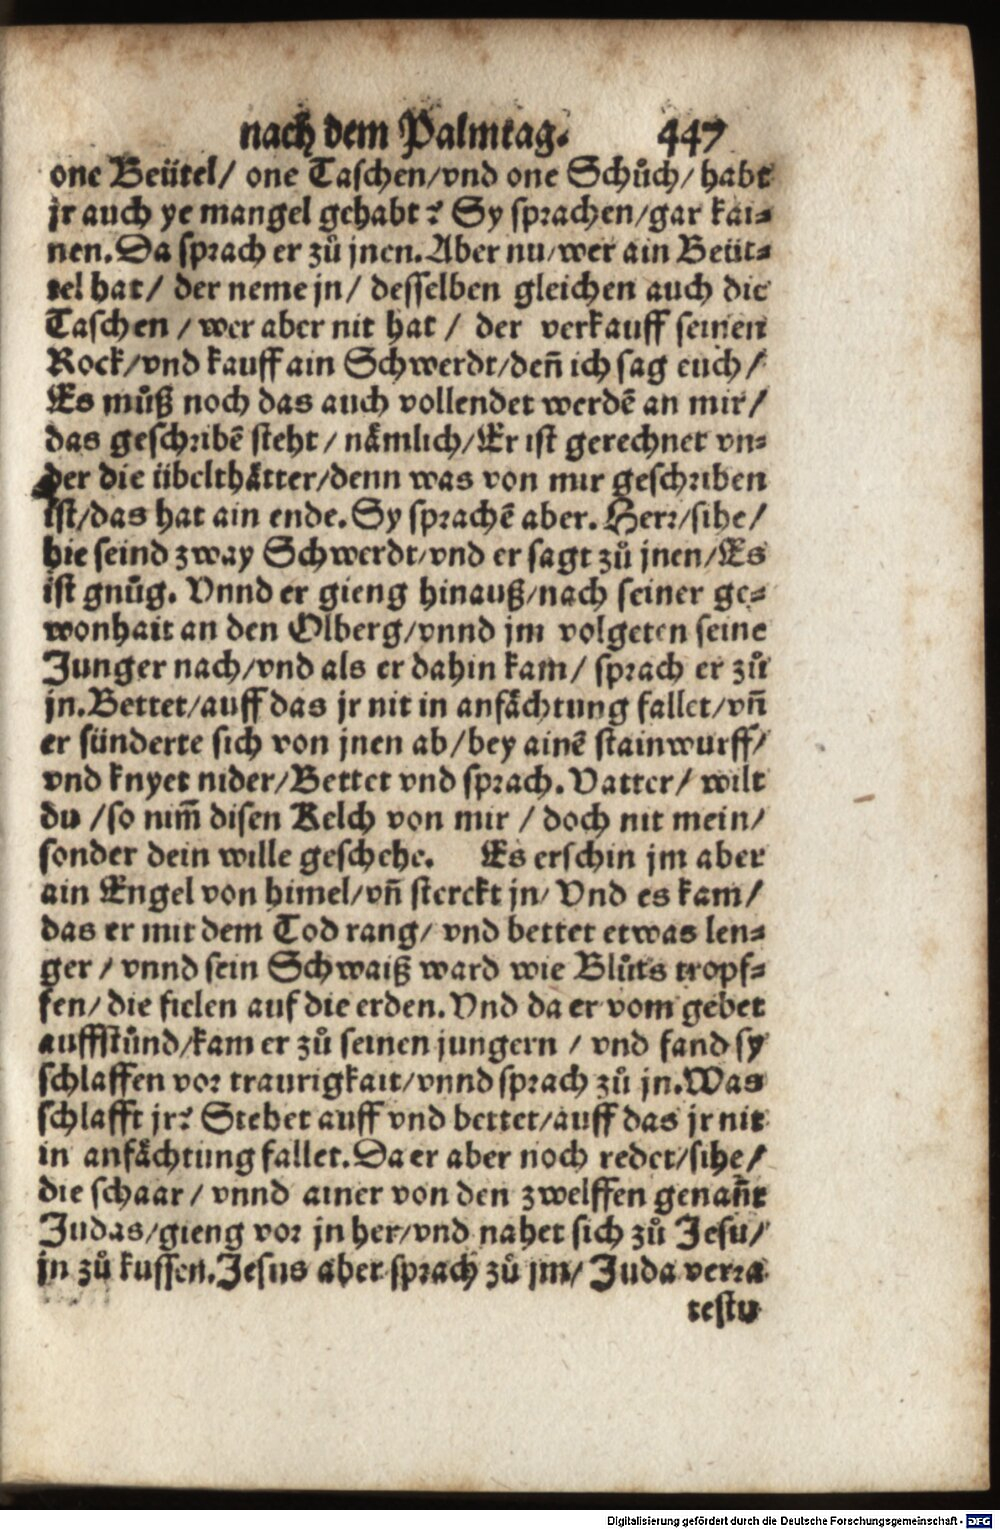 nach dem Palmtag. 447
one Beütel/ one Taschen/vnd one Schůch/ habt
jr auch ye mangel gehabt? Sy sprachen/gar kai⸗
nen. Da sprach er zů jnen. Aber nu/wer ain Beüt⸗
tel hat/ der neme jn/ desselben gleichen auch die
Taschen / wer aber nit hat / der verkauff seinen
Rock/vnd kauff ain Schwerdt/deñ ich sag euch/
Es můß noch das auch vollendet werdẽ an mir/
das geschribẽ steht / nämlich/Er ist gerechnet vn⸗
der die übelthätter/denn was von mir geschriben
ist/das hat ain ende. Sy sprachẽ aber. Herr/sihe/
hie seind zway Schwerdt/vnd er sagt zů jnen/Es
ist gnůg. Vnnd er gieng hinauß/nach seiner ge⸗
wonhait an den Olberg/vnnd jm volgeten seine
Junger nach/vnd als er dahin kam/ sprach er zů
jn. Bettet/auff das jr nit in anfächtung fallet/vñ
er sünderte sich von jnen ab/bey ainẽ stainwurff/
vnd knyet nider/Bettet vnd sprach. Vatter/ wilt
du /so nim̃ disen Kelch von mir / doch nit mein/
sonder dein wille geschehe. Es erschin jm aber
ain Engel von himel/vñ sterckt jn/ Vnd es kam/
das er mit dem Tod rang/ vnd bettet etwas len⸗
ger / vnnd sein Schwaiß ward wie Blůts tropf⸗
fen/ die fielen auf die erden. Vnd da er vom gebet
auffstůnd/kam er zů seinen jungern / vnd fand sy
schlaffen vor traurigkait/vnnd sprach zů jn. Was
schlafft jr? Stehet auff vnd bettet/auff das jr nit
in anfächtung fallet. Da er aber noch redet/sihe/
die schaar / vnnd ainer von den zwelffen genañt
Judas/gieng vor jn her/vnd nahet sich zů Jesu/
jn zů kussen. Jesus aber sprach zů jm/ Juda verra
testu
Digitalisierung gefördert durch die Deutsche Forschungsgemeinschaft - DFG